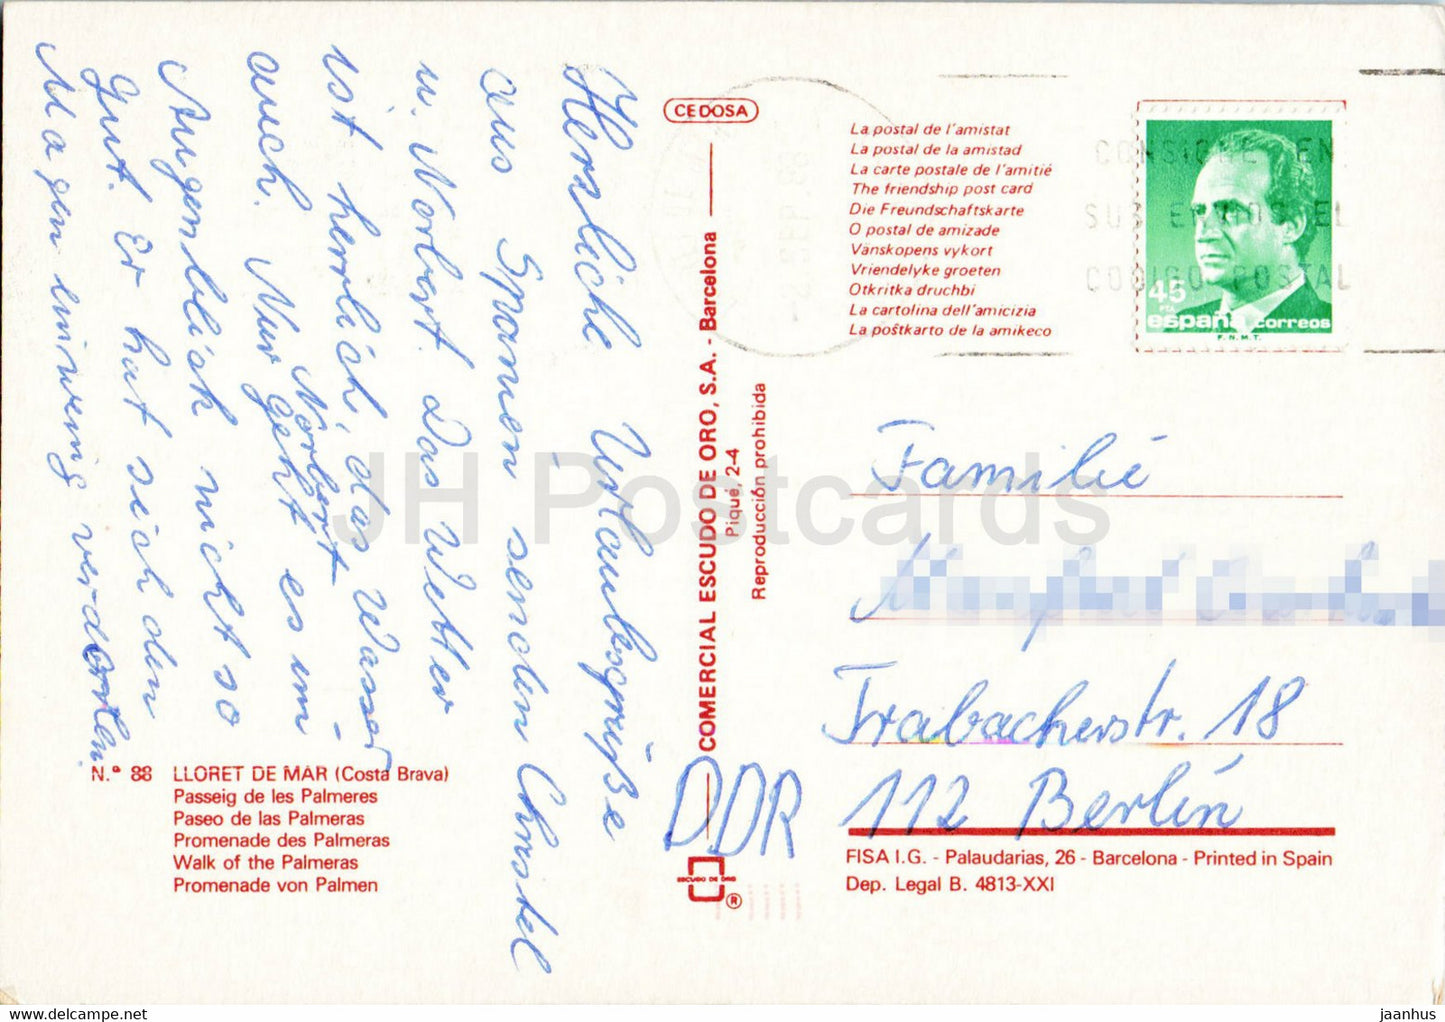 Herzliche Urlaubsgrüße
aus Spanien senden Christel
u. Norbert. Das Wetter
ist herrlich, das Wasser
auch. Nur geht es im
Norbert
Augenblick nicht so
gut. Er hat sich den
Magen ein wenig verdorben.
N.º 88 LLORET DE MAR (Costa Brava)
Passeig de les Palmeres
Paseo de las Palmeras
Promenade des Palmeras
Walk of the Palmeras
Promenade von Palmen
CEDOSA
COMERCIAL ESCUDO DE ORO, S.A. - Barcelona
Piqué, 2-4
Reproducción prohibida
ESCUDO DE ORO
®
DDR
La postal de l'amistat
La postal de la amistad
La carte postale de l'amitié
The friendship post card
Die Freundschaftskarte
O postal de amizade
Vänskopens vykort
Vriendelyke groeten
Otkritka druchbi
La cartolina dell'amicizia
La poŝtkarto de la amikeco
CONSIGNE EN
SUS ENVIOS EL
CODIGO POSTAL
45
PTA
españa correos
F.N.M.T.
Familie
Trabacherstr. 18
112 Berlin
FISA I.G. - Palaudarias, 26 - Barcelona - Printed in Spain
Dep. Legal B. 4813-XXI
JH Postcards
www.jhpostcard.com
jaanhus